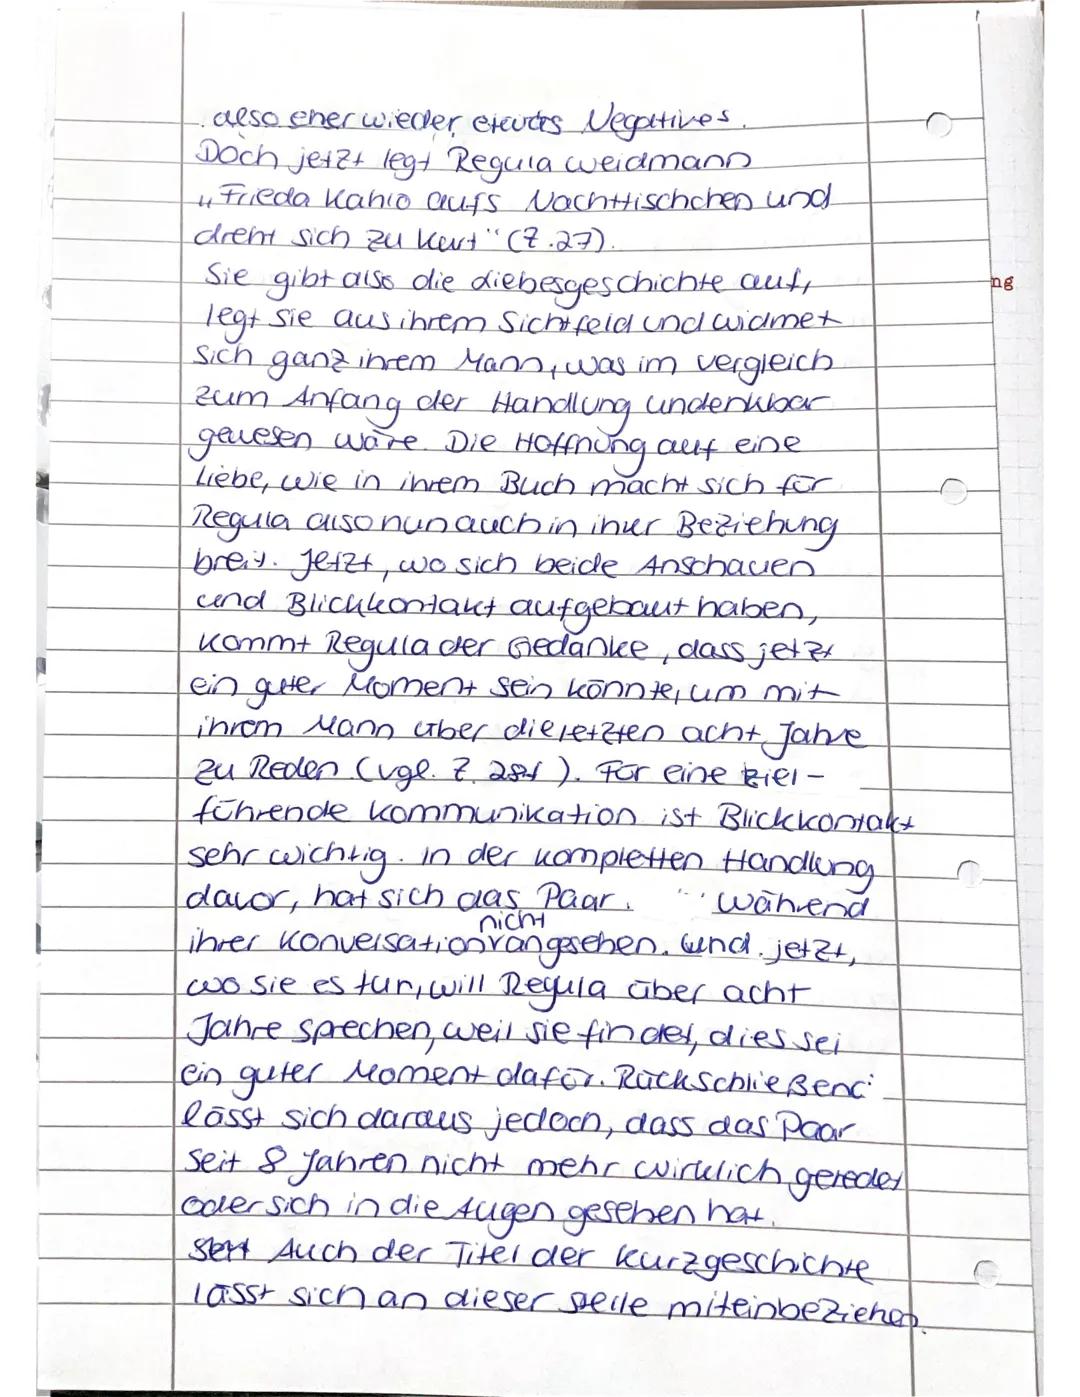 also eher wieder etwas Negatives.
Doch jetzt legt Regula Weidmann
„Frieda Kahlo aufs Nachttischchen und
dreht sich zu Kurt" (Z.27).
Sie gibt also die Liebesgeschichte auf,
legt sie aus ihrem Sichtfeld und widmet
sich ganz ihrem Mann, was im vergleich
zum Anfang der Handlung undenkbar
gewesen wäre. Die Hoffnung auf eine
Liebe, wie in ihrem Buch macht sich für
Regula also nun auch in ihrer Beziehung
breit. Jetzt, wo sich beide Anschauen
und Blickkontakt aufgebaut haben,
kommt Regula der Gedanke, dass jetzt
ein guter Moment sein könnte, um mit
ihrem Mann über die letzten acht Jahre
zu Reden (vgl. Z. 28f). Für eine ziel-
führende Kommunikation ist Blickkontakt
sehr wichtig. In der kompletten Handlung
davor, hat sich das Paar während
ihrer Konversation nicht angesehen. Und jetzt,
wo sie es tun, will Regula über acht
Jahre sprechen, weil sie findet, dies sei
ein guter Moment dafür. Rückschließend
lässt sich daraus jedoch, dass das Paar
seit 8 Jahren nicht mehr wirklich geredet
oder sich in die Augen gesehen hat.
Auch der Titel der Kurzgeschichte
lässt sich an dieser Stelle miteinbeziehen.
ng